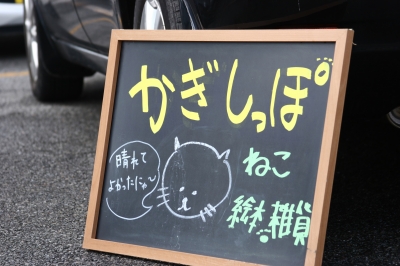 かぎしっぽ
晴れて
よかったにゃ〜
ねこ
雑貨